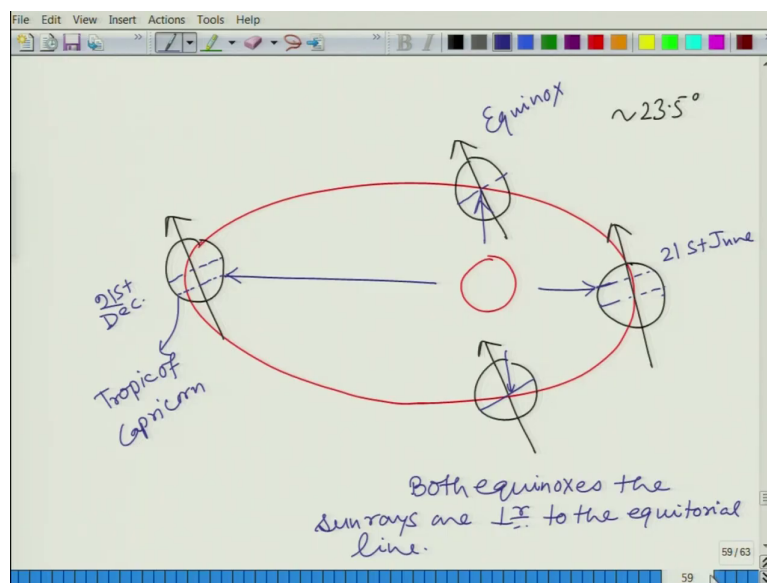 File Edit View Insert Actions Tools Help
B I
Equinox
~23.5°
21st June
21st
Dec.
Tropic of
Capricorn
Both equinoxes the
sunrays are ⊥r to the equitorial
line.
59 / 63
59